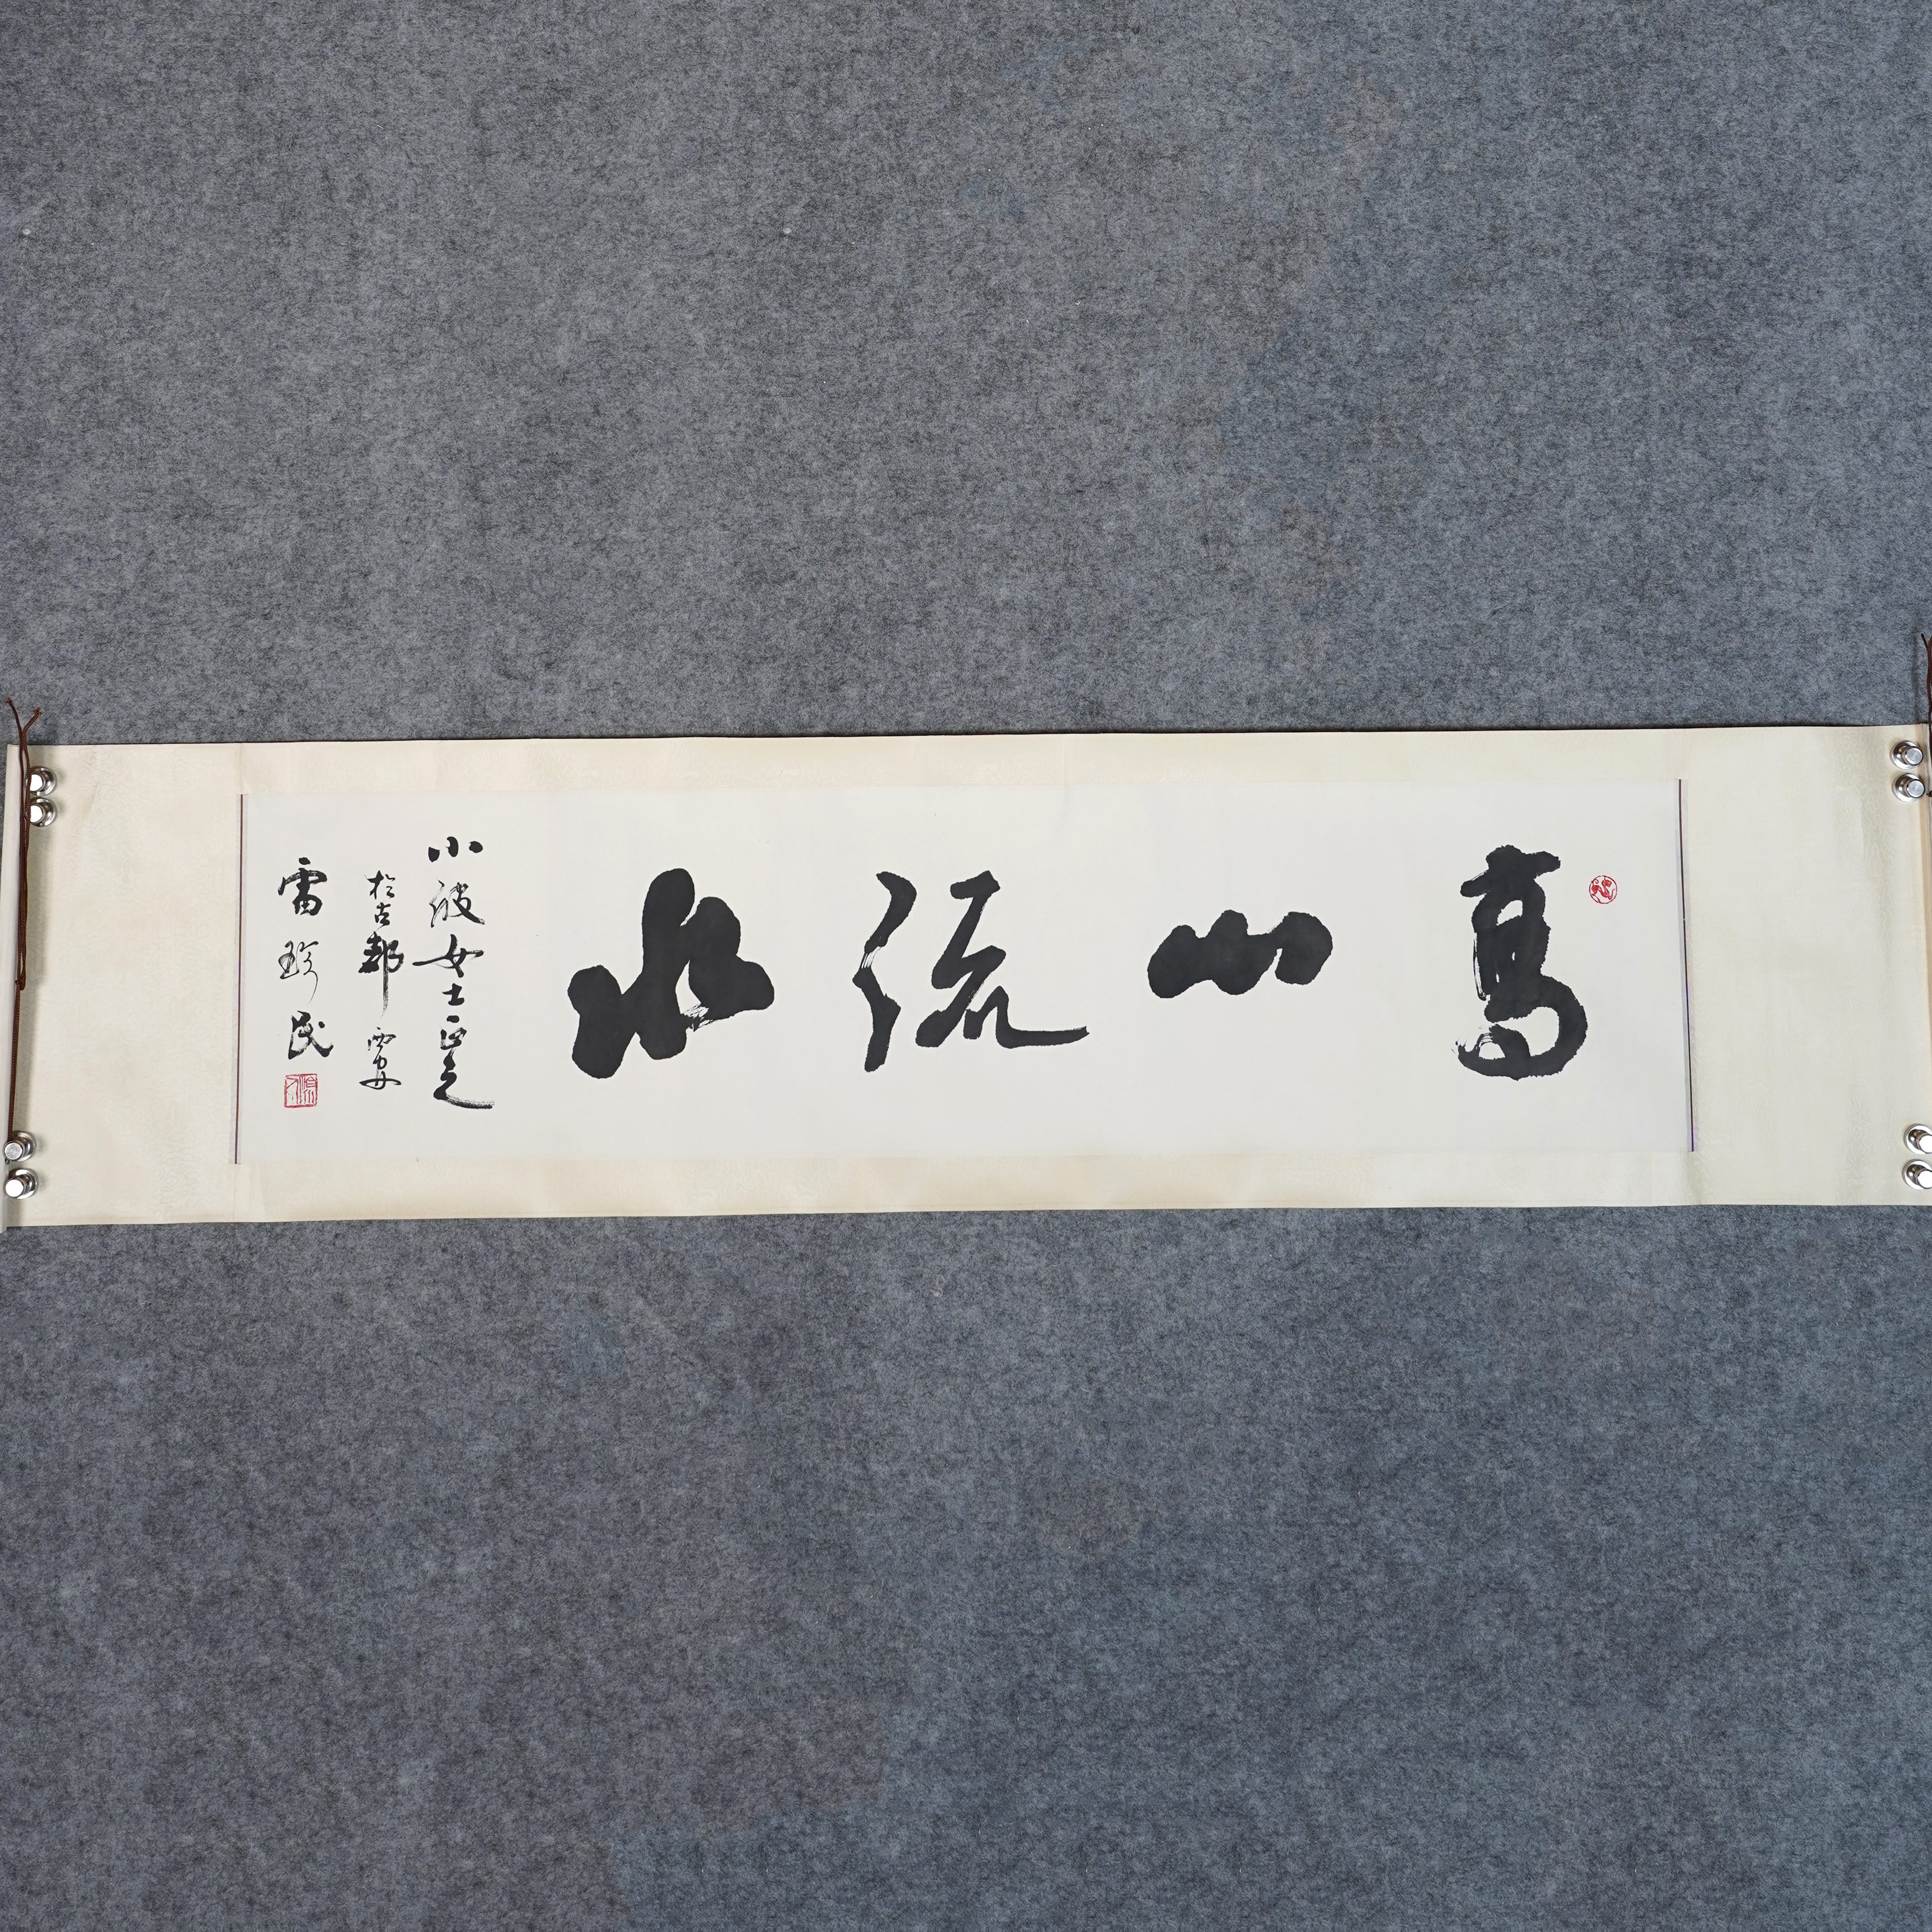 高山流水
小波女士正之
於古都西安
雷珍民